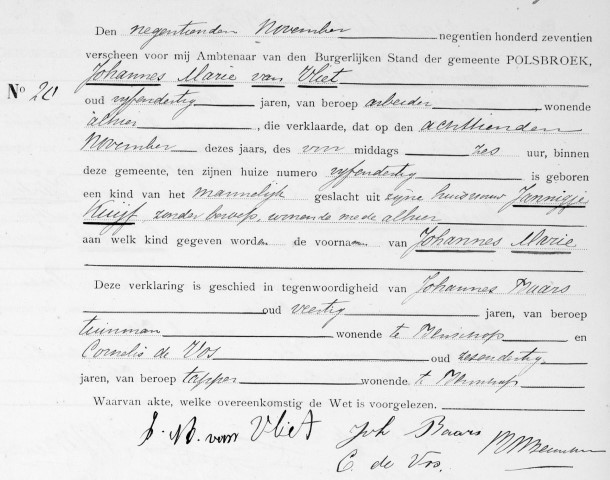 Den negentienden November negentien honderd zeventien
verscheen voor mij Ambtenaar van den Burgerlijken Stand der gemeente POLSBROEK,
Johannes Marie van Vliet
No 20 oud vyfendertig jaren, van beroep arbeider, wonende
alhier, die verklaarde, dat op den achttienden
November dezes jaars, des voormiddags zes uur, binnen
deze gemeente, ten zijnen huize numero vyfendertig is geboren
een kind van het mannelijk geslacht uit zyne huisvrouw Jannigje
Kuijf zonder beroep, wonende mede alhier
aan welk kind gegeven worden de voornamen van Johannes Marie
Deze verklaring is geschied in tegenwoordigheid van Johannes Baars
oud veertig jaren, van beroep
tuinman wonende te Benschop en
Cornelis de Vos oud zesendertig
jaren, van beroep tapper wonende te Benschop
Waarvan akte, welke overeenkomstig de Wet is voorgelezen.
J. M. van Vliet Joh Baars
C. de Vos.